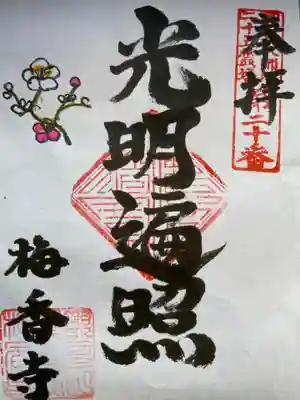 奉拝
第二十番
光明遍照
梅香寺